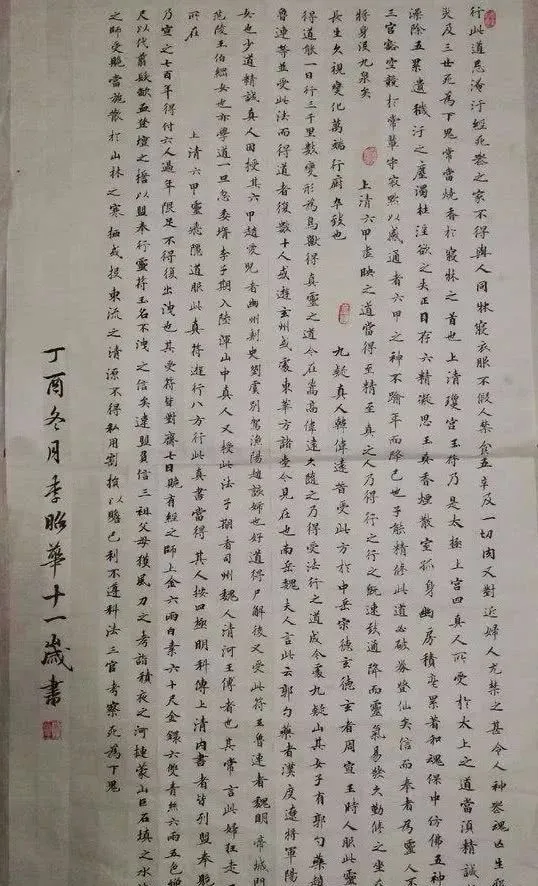 行此道忌淹汙經死喪之家不得與人同牀寢衣服不假人禁食五辛及一切肉又對近婦人尤禁之甚令人神喪魂亡生邪
災及三世死為下鬼常當燒香於寢牀之首也上清瓊宮玉符乃是太極上宮四真人所受於太上之道當須精誠
潔除五累遺穢汙之塵濁杜淫欲之失正目存六精凝思玉真香煙散室孤身幽房積毫累著和魂保中仿佛五神
三宮豁空競於常輩守寂默以感通者六甲之神不踰年而降已也子能精修此道必破券登仙矣信而奉者為靈人不
將身沒九泉矣 上清六甲虛映之道當得至精至真之人乃得行之行之既速致通降而靈氣易發久勤修之坐在
長生久視變化萬端行廚卒致也 九疑真人韓偉遠昔受此方於中岳宗德玄德玄者周宣王時人服此靈
得道能一日行三千里數變形為鳥獸得真靈之道今在嵩高偉遠久隨之乃得受法行之道成今處九疑山其女子有郭勺藥趙
魯連等並受此法而得道者復數十人或遊玄州或處東華方諸臺今見在也南岳魏夫人言此云郭勺藥者漢度遼將軍陽
女也少道精誠真人因授其六甲趙愛兒者幽州刺史劉虞別駕漁陽趙該姊也好道得尸解後又受此符王魯連者魏明帝城門
范陵王伯綱女也亦學道一旦忽委婿李子期入陸渾山中真人又授此法子期者司州魏人清河王傅者也其常言此婦狂走云
所在 上清六甲靈飛隱道服此真符遊行八方行此真書當得其人按四極明科傳上清內書者皆列盟奉贶
乃宣之七百年得付六人過年限足不得復出洩也其受符皆對齋七日贶有經之師上金六兩白素六十尺金鐶六雙青絲六兩五色繒
尺以代翦歃血登壇之誓以盟奉行靈符玉名不洩之信矣違盟負信三祖父母獲風刀之考詣積夜之河揵蒙山巨石填之水
之師受贶當施散於山林之寒栖或投東流之清源不得私用割損以贍已利不遵科法三官考察死為下鬼
丁酉冬月季昭華十一歲書